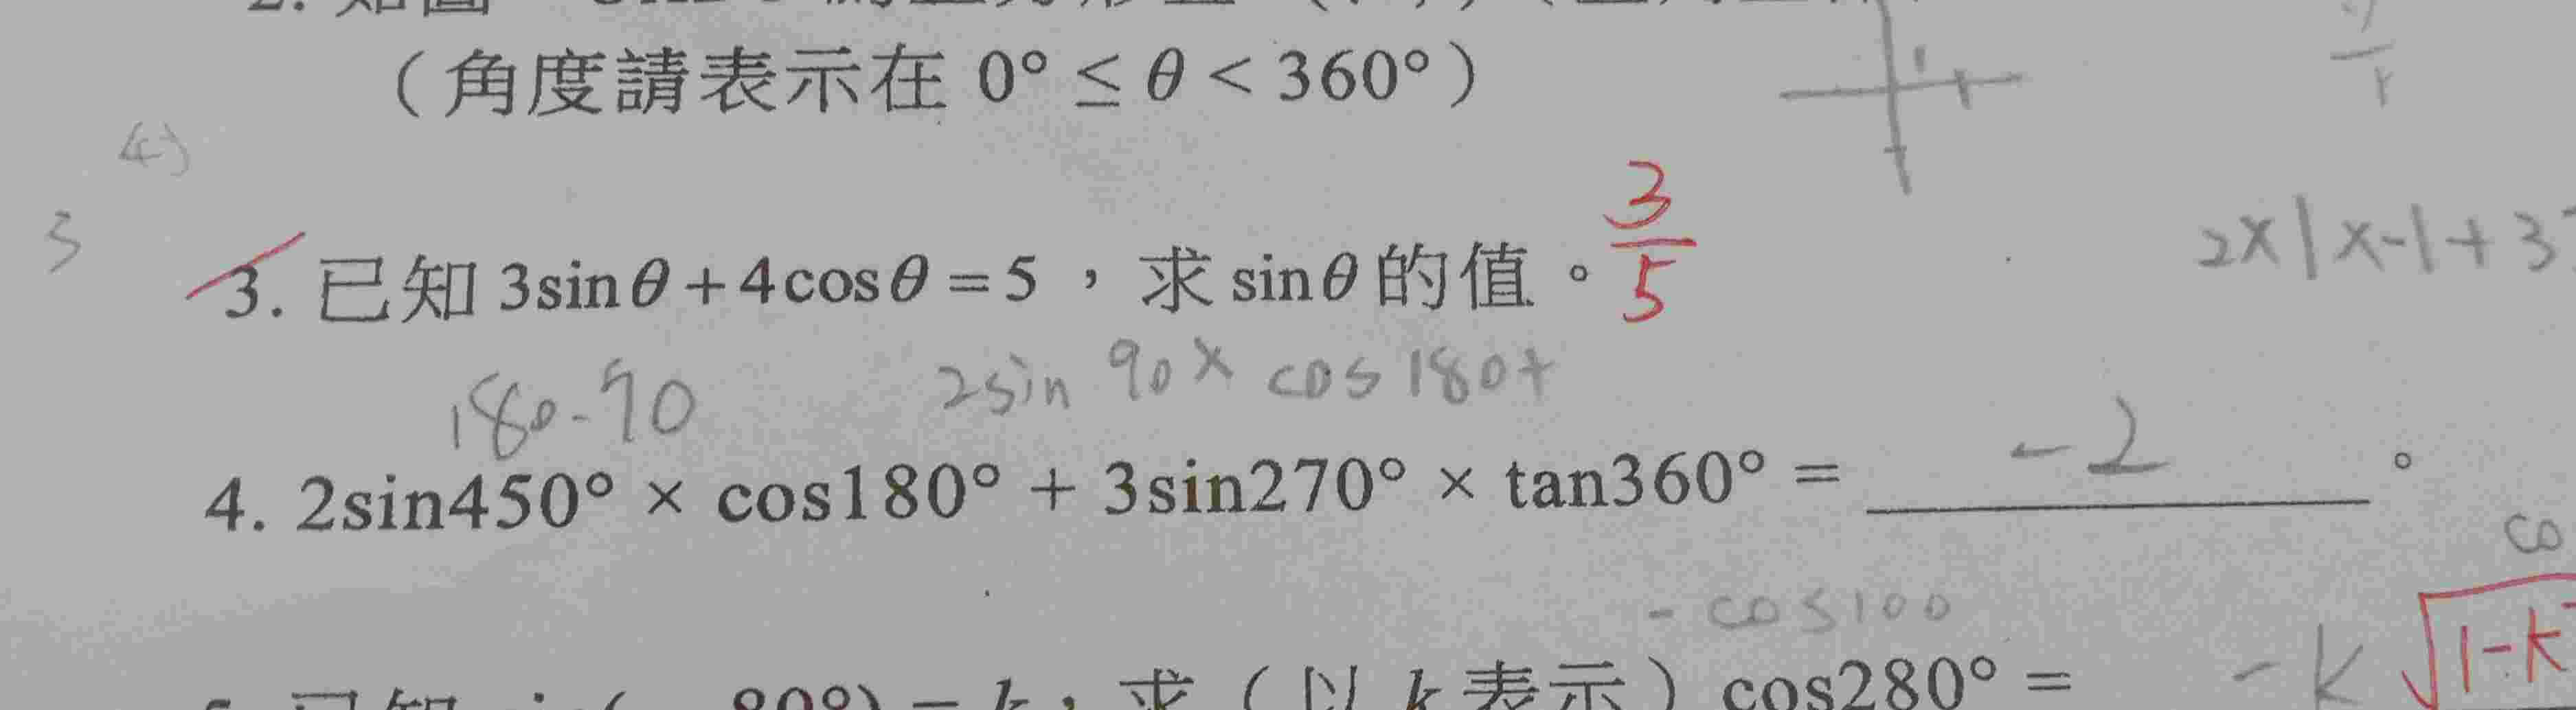 （角度請表示在 0° ≤ θ < 360°）
4)
3
3. 已知 3sinθ + 4cosθ = 5，求 sinθ 的值。3/5
2×1×-1+3
180-90 2sin 90× cos 180+
4. 2sin450° × cos180° + 3sin270° × tan360° = -2 。
-cos100
求（以 k 表示）cos280° = -k √1-k